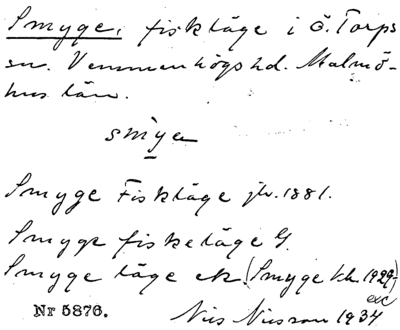 Smyge, fiskläge i Ö. Torps
sn. Vemmenhögs hd. Malmö-
hus län.
smyge
Smyge Fiskläge jb. 1881.
Smyge fiskeläge G.
Smyge läge ek. (Smyge kk. 1929)
exc
Nr 5876. Nils Nilsson 1934